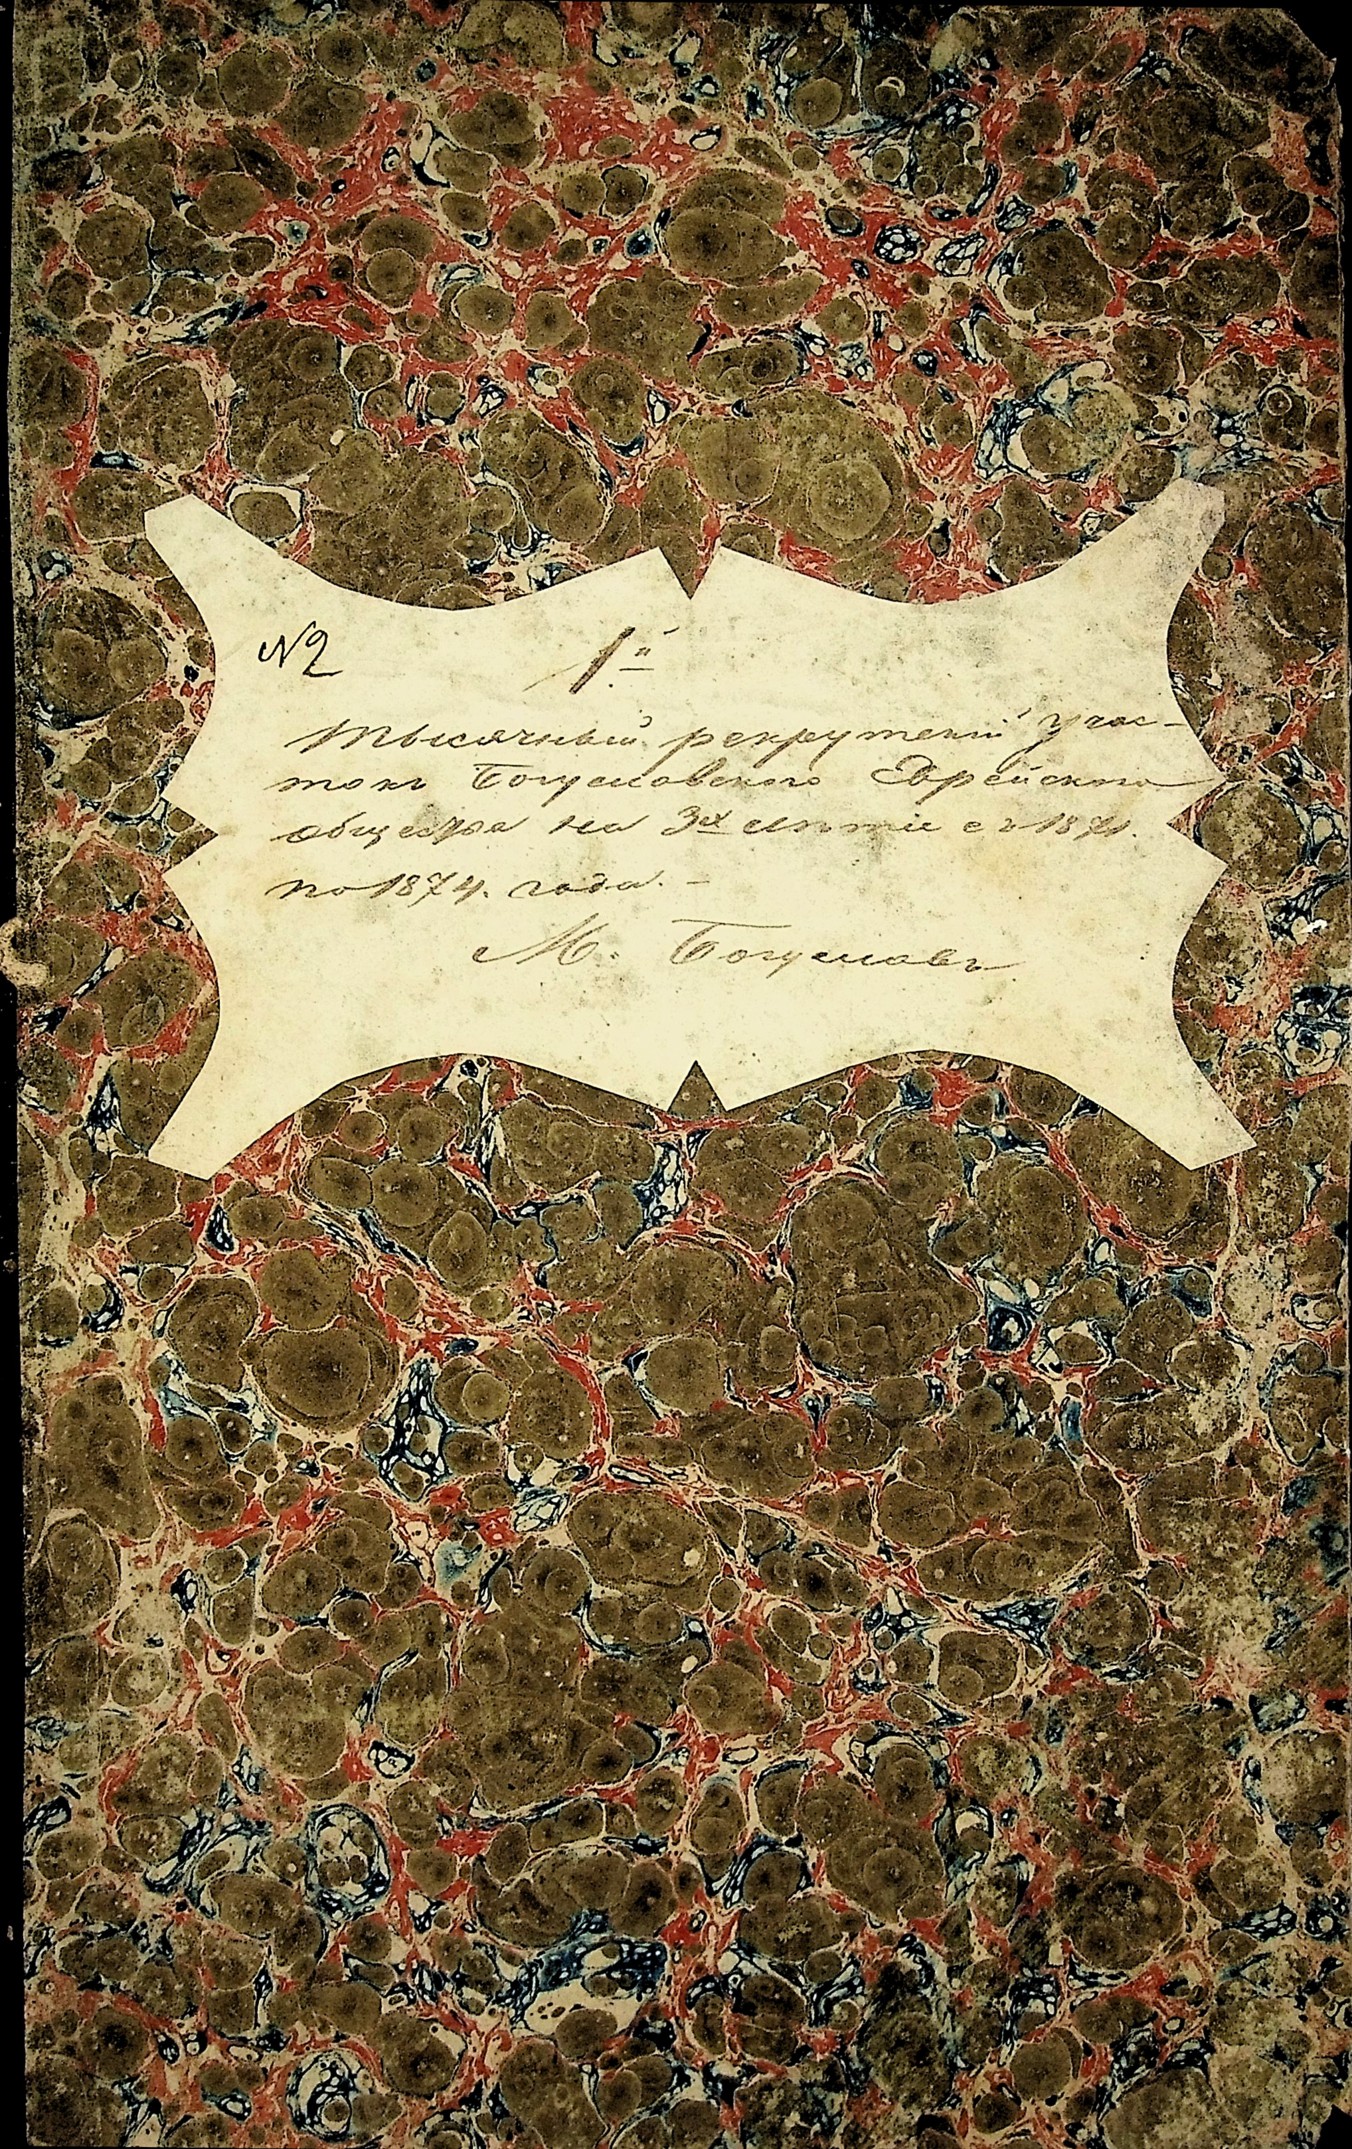 №2 1й
Тысячный рекрутскій учас-
токъ Богуславскаго Еврейскаго
общества на 3х лѣтіе съ 1871.
по 1874. года. -
М. Богуславъ